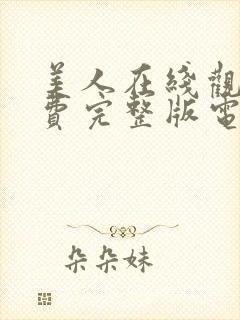 美人在线觀
費完整版電
朵朵妹